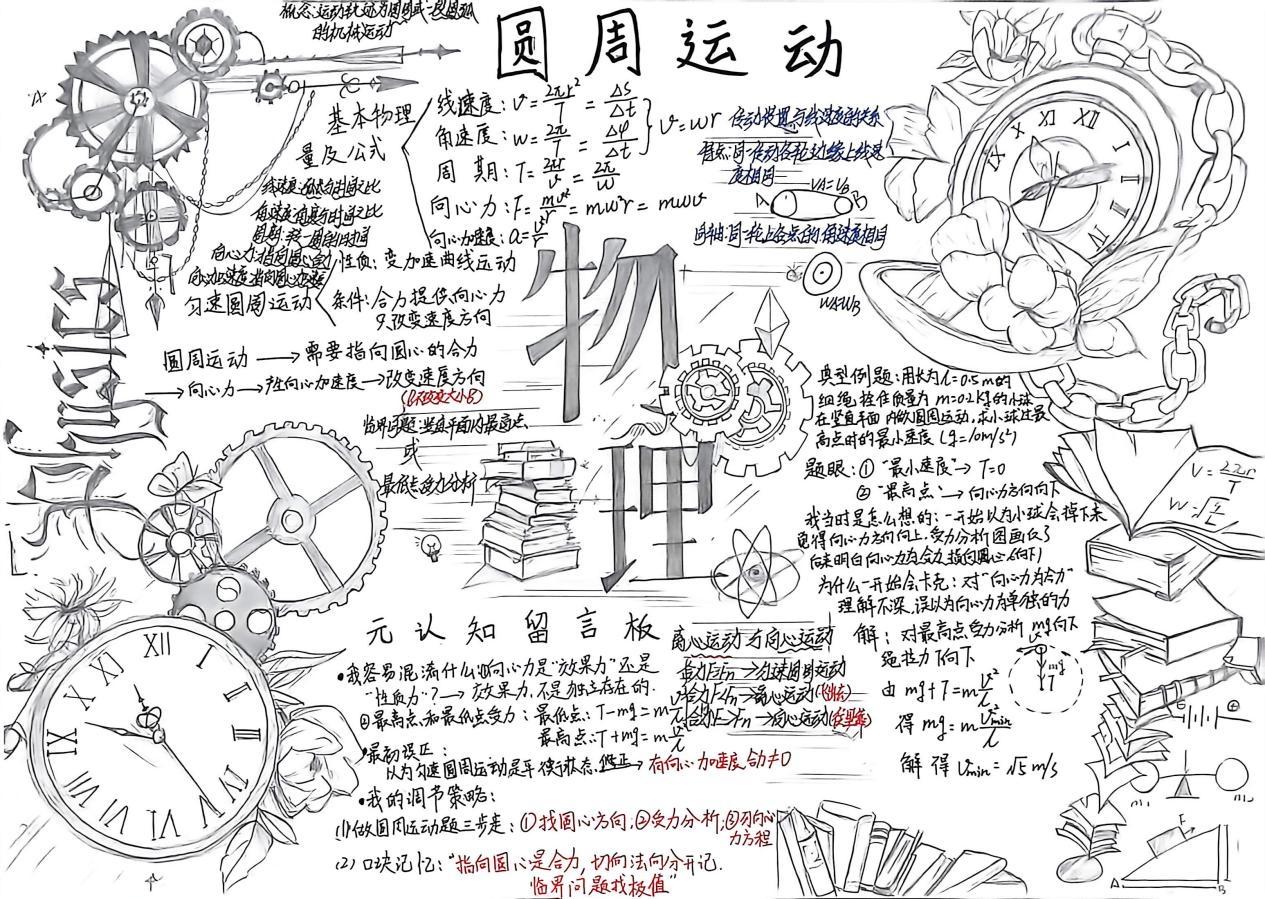 概念:运动轨迹为圆周或一段圆弧
的机械运动
圆周运动
基本物理
量及公式
线速度: v = 2πr²/T = Δs/Δt
角速度: w = 2π/T = Δφ/Δt
v = wr
周期: T = 2πr/v = 2π/w
向心力: F = mv²/r = mw²r = mwv
向心加速度: a = v²/r
线速度:
角速度:
向心力:指向圆心
传动装置与线速度的关系
同一传动各轮边缘上线速
度相同
VA=VB
A
B
同轴:同一轮上各点的角速度相同
WA=WB
匀速圆周运动
性质: 变加速曲线运动
条件: 合力提供向心力
只改变速度方向
圆周运动 → 需要指向圆心的合力
→ 向心力 → 产生向心加速度 → 改变速度方向
(只改变大小)
临界问题:竖直平面内最高点
或
最低点受力分析
物理
physics
典型例题: 用长为 L=0.5m的
细绳, 拴住质量为 m=0.2kg的小球
在竖直平面内做圆周运动, 求小球过最
高点时的最小速度 (g=10m/s²)
题眼: ① "最小速度" → T=0
② "最高点" → 向心力方向向下
我当时是怎么想的: 一开始以为小球会掉下来
觉得向心力方向向上, 受力分析图画反了
后来明白向心力为合力, 指向圆心(向下)
为什么一开始会卡壳: 对"向心力为合力"
理解不深, 误以为向心力有单独的力
解: 对最高点受力分析 mg向下
绳拉力 T向下
由 mg+T = m v²/L
得 mg = m v²min/L
解得 Vmin = √5 m/s
mg
T
V = 2πr/T
元认知留言板
•我容易混淆什么: 向心力是"效果力"还是
"性质力"? → 效果力, 不是独立存在的.
②最高点和最低点受力: 最低点: T-mg = m v²/L
最高点: T+mg = m v²/L
•最初误区:
以为匀速圆周运动是平衡状态. 纠正→ 有向心加速度, 合力≠0
•我的调节策略:
(1)做圆周运动题三步走: ①找圆心方向; ②受力分析; ③列向心
力方程
(2) 口诀记忆: "指向圆心是合力, 切向法向分开记.
临界问题找极值"
离心运动与向心运动
合力F=Fn → 匀速圆周运动
合力F<Fn → 离心运动
合力F>Fn → 向心运动
XII
I
II
III
IV
V
VI
VII
VIII
IX
X
XI
m₁
m₂
F
A
B